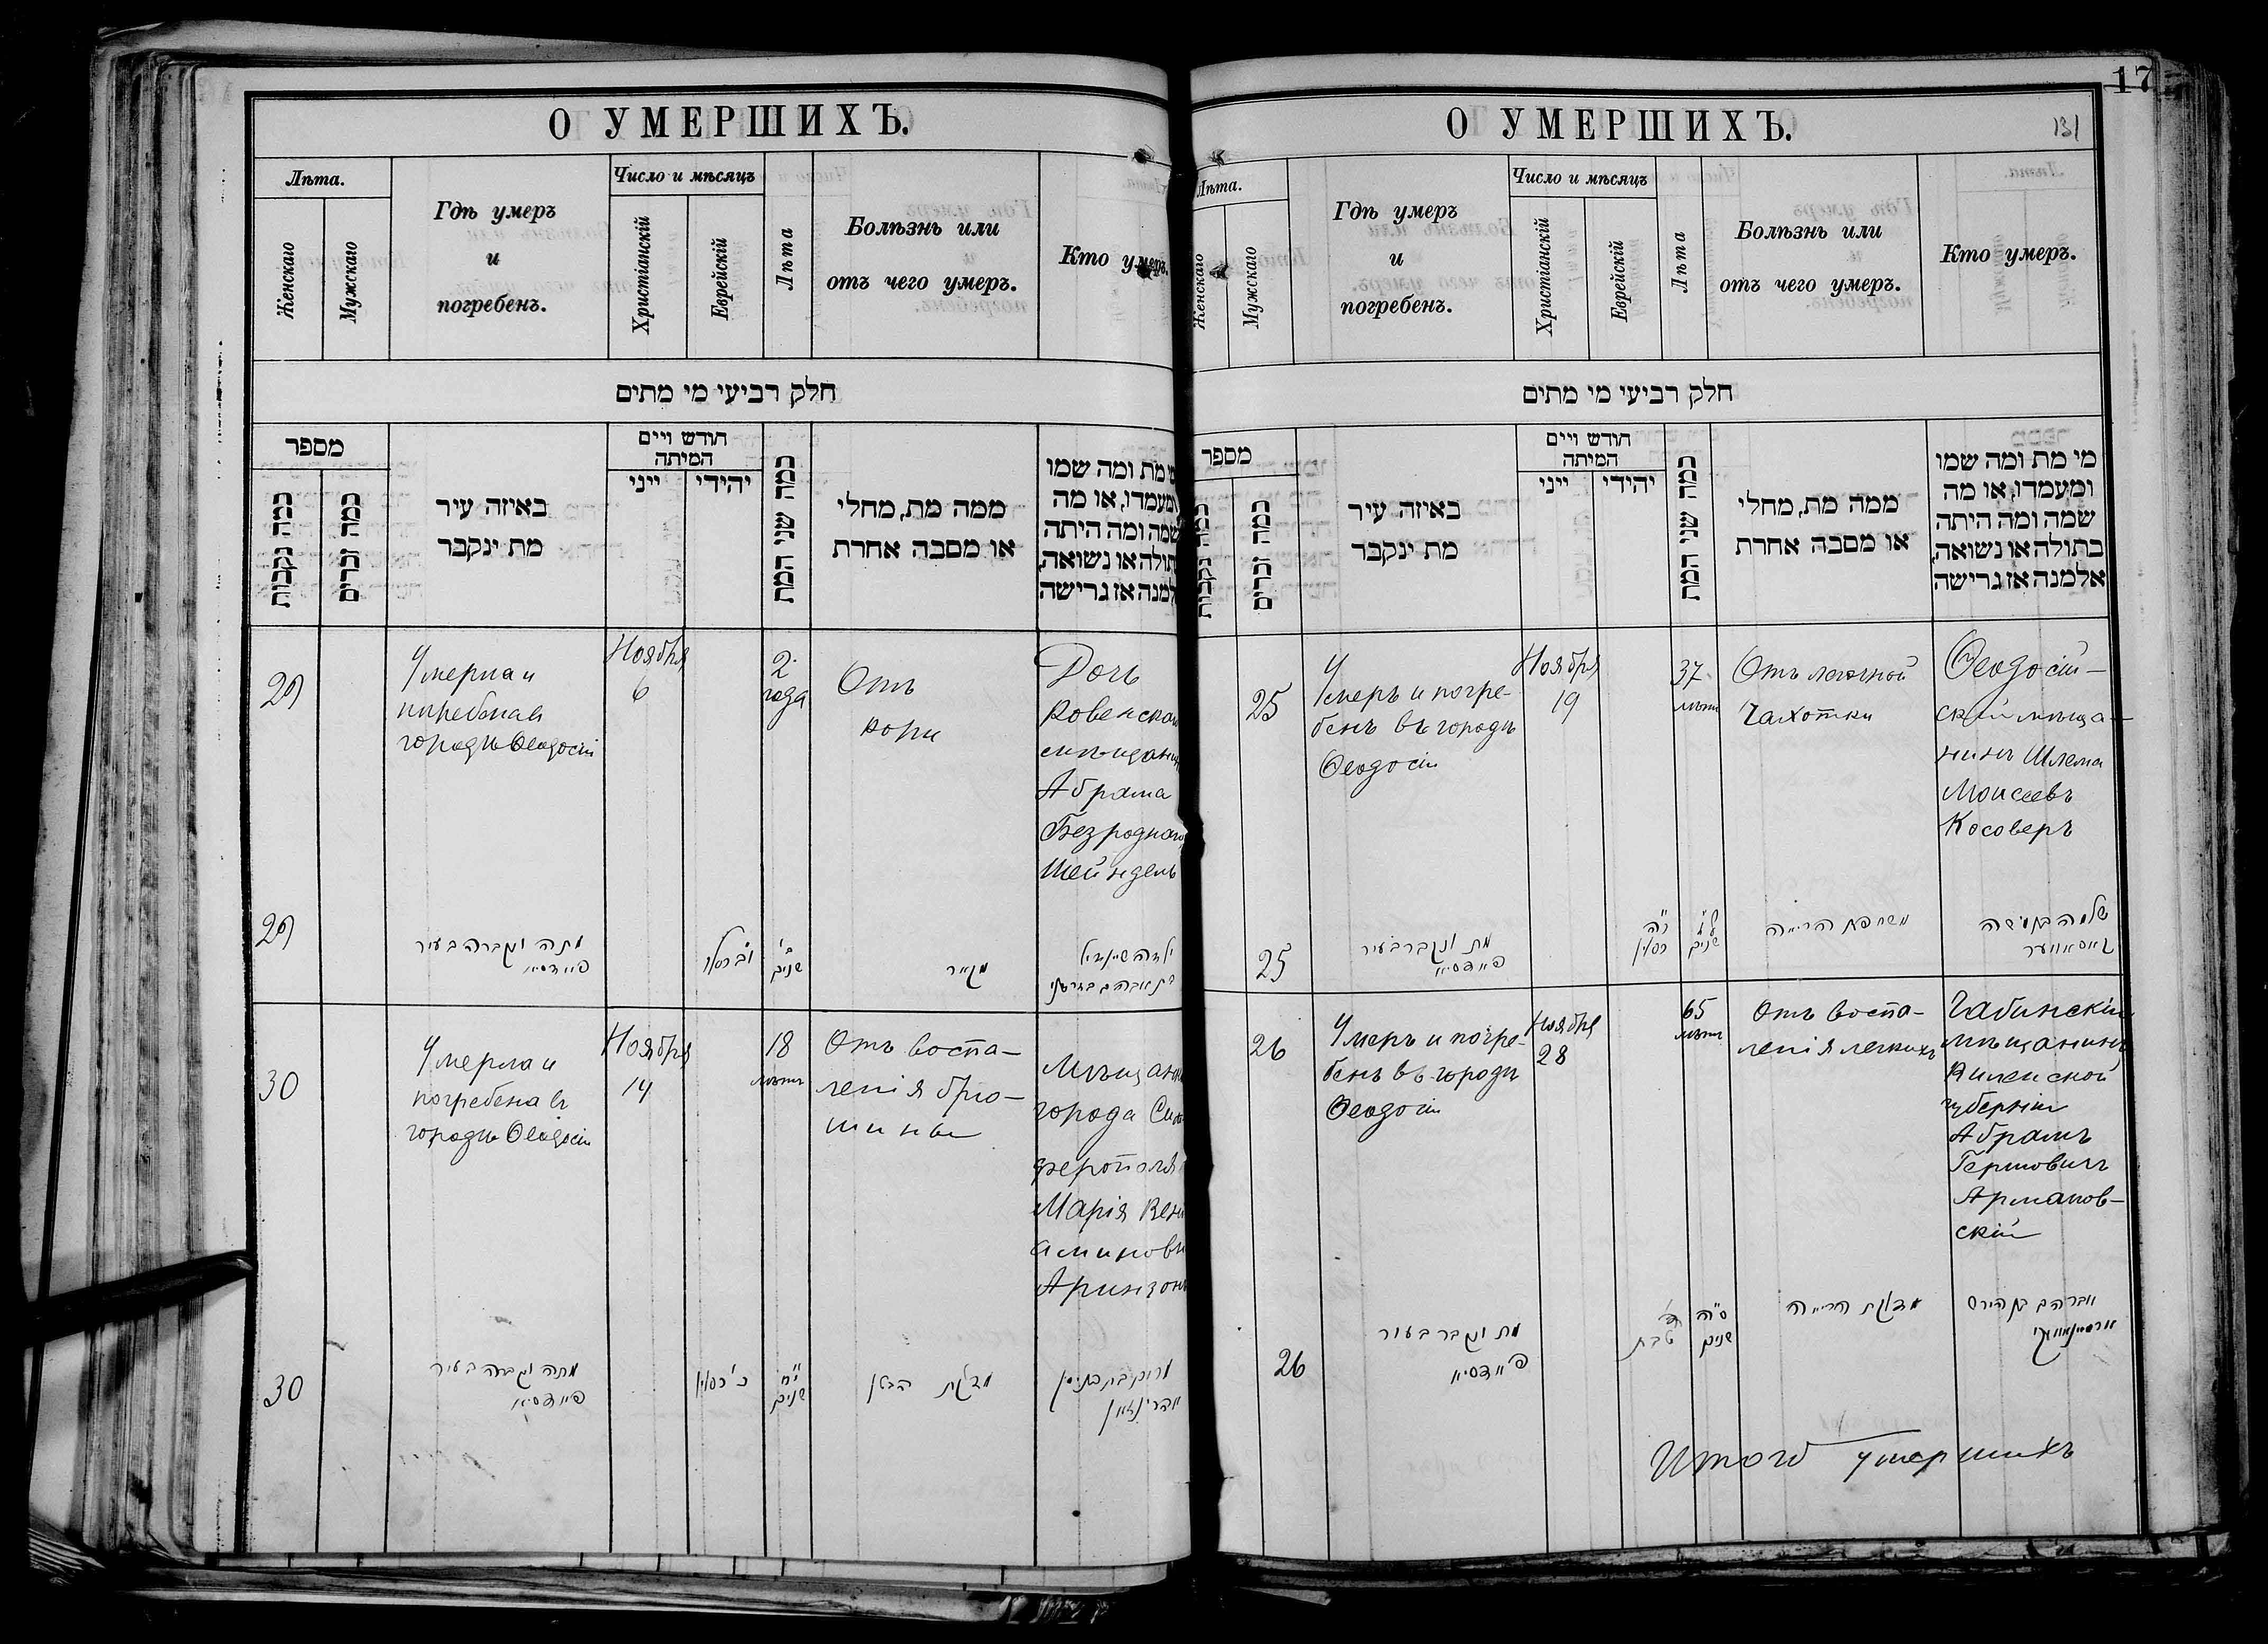 О УМЕРШИХЪ.
Лѣта.
Женскаго
Мужскаго
Гдѣ умеръ
и
погребенъ.
Число и мѣсяцъ
Христіанскій
Еврейскій
Лѣта
Болѣзнь или
отъ чего умеръ.
Кто умеръ.
חלק רביעי מי מתים
מספר
כמה נקבות
כמה זכרים
באיזה עיר
מת ינקבר
חודש ויים
המיתה
ייני
יהידי
כמה שני המת
ממה מת, מחלי
או מסבה אחרת
מי מת ומה שמו
ומעמדו, או מה
שמה ומה היתה
בתולה או נשואה,
אלמנה אז גרישה
29
Умерла и
погребена въ
городѣ Ѳеодосіи
Ноября
6
2
года
Отъ
кори
Дочь
Ровенскаго
мѣщанина
Абрама
Безроднаго
Шейндель
29
מתה ונקברה בעיר
פיידסיא
ב'
שנים
ילדה שיינדיל
30
Умерла и
погребена въ
городѣ Ѳеодосіи
Ноября
14
18
лѣтъ
Отъ воспа-
ленія брю-
шины
Мѣщанка
города Сим-
ферополя
Марія Вені-
аминовна
Аринзонъ
30
מתה ונקברה בעיר
פיידסיא
כ' כסלו
י"ח
שנים
מדלקת הבטן
17
131
О УМЕРШИХЪ.
Лѣта.
Женскаго
Мужскаго
Гдѣ умеръ
и
погребенъ.
Число и мѣсяцъ
Христіанскій
Еврейскій
Лѣта
Болѣзнь или
отъ чего умеръ.
Кто умеръ.
חלק רביעי מי מתים
מספר
כמה נקבות
כמה זכרים
באיזה עיר
מת ינקבר
חודש ויים
המיתה
ייני
יהידי
כמה שני המת
ממה מת, מחלי
או מסבה אחרת
מי מת ומה שמו
ומעמדו, או מה
שמה ומה היתה
בתולה או נשואה,
אלמנה אז גרישה
25
Умеръ и погре-
бенъ въ городѣ
Ѳеодосіи
Ноября
19
37
лѣтъ
Отъ легочной
Чахотки
Ѳеодосій-
скій мѣща-
нинъ Шлема
Моисеевъ
Косоверъ
25
מת ונקבר בעיר
פיידסיא
כ"ה
כסלו
ל"ז
שנים
משחפת הריאה
שלמה בן משה
קאסאווער
26
Умеръ и погре-
бенъ въ городѣ
Ѳеодосіи
Ноября
28
65
лѣтъ
Отъ воспа-
ленія легкихъ
мѣщанинъ
Виленской
губерніи
Абрамъ
Гершовичъ
Арманов-
скій
26
מת ונקבר בעיר
פיידסיא
טבת
ס"ה
שנים
מדלקת הריאה
אברהם בן הירש
Итого умершихъ